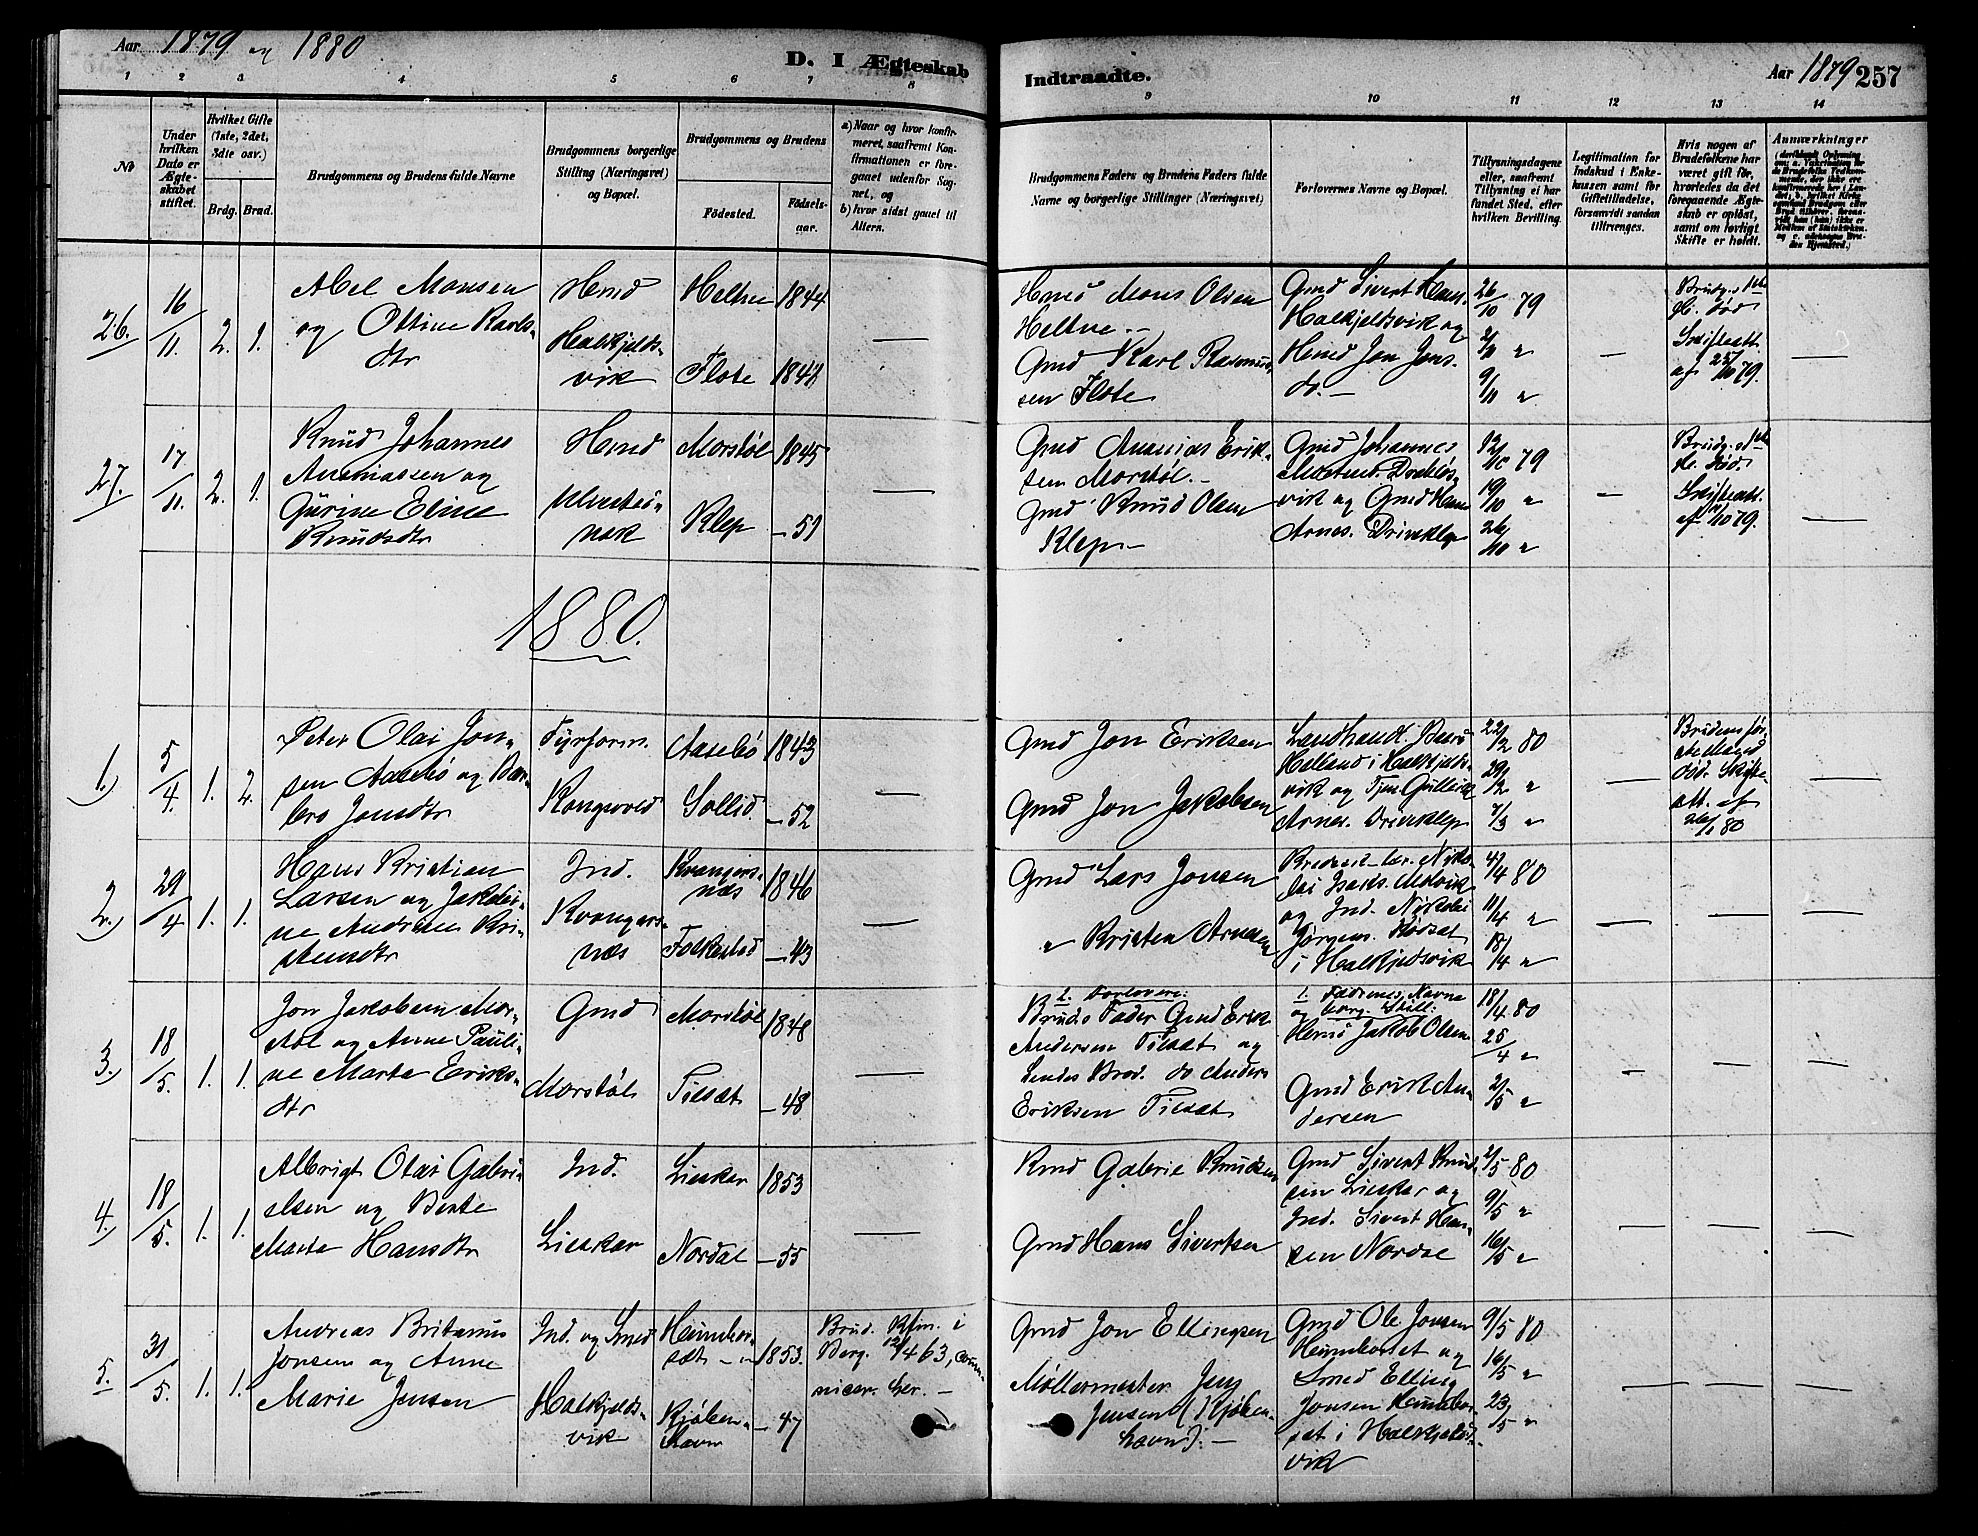 Aar 1879 og 1880
D. I Ægteskab
1 2 3 4 5 6 7 8
No
Under hvilken Dato er Ægteskabet stiftet.
Hvilket Gifte (1ste, 2det, 3die osv.)
Brdg. Brud.
Brudgommens og Brudens fulde Navne
Brudgommens borgerlige Stilling (Næringsvei) og Bopæl.
Brudgommens og Brudens
Fødested. Fødselsaar.
a) Naar og hvor konfirmeret, saafremt Konfirmationen er foregaaet udenfor Sognet, og
b) hvor sidst gaaet til Alters.
Indtraadte.
Aar 1879 257
9 10 11 12 13 14
Brudgommens Faders og Brudens Faders fulde Navne og borgerlige Stillinger (Næringsvei)
Forlovernes Navne og Bopæl.
Tillysningsdagene eller, saafremt Tillysning ei har fundet Sted, efter hvilken Bevilling.
Legitimation for Indskud i Enkekassen samt for Giftetilladelse, forsaavidt saadan tiltrænges.
Hvis nogen af Brudefolkene har været gift før, hvorledes da det foregaaende Ægteskab er opløst, samt om lovligt Skifte er holdt.
Anmærkninger
26. 16/11. 2. 1.
Abel Monsen
og Ottine Karls-
dtr
Hmd
Halkjelds-
vik
Heltne 1844
Flote 1844
—
Hmd Mons Olsen
Heltne. -
Gmd Karl Rasmus-
sen Flote
Gmd Sivert Hans.
Halkjeldsvik og
Hmd Jon Jons.
do. —
26/10 79
2/11 "
9/11 "
—
Brudg.s 1ste
H. død
Skifteatt
af 25/10 79.
—
27. 17/11. 2. 1.
Knud Johannes
Ananiassen og
Gurine Eline
Knudsdtr
Hmd
Morstøl 1845
Klep — 51
—
Gmd Ananias Erik-
sen Morstøl. -
Gmd Knud Olsen
Klep -
Gmd Johannes
vik og Gmd Hans
Arnes. Driveklep
12/10 79
19/10 "
26/10 "
—
Brudg.s 1ste
H. død.
Skifteatt.
—
1880.
1.) 5/4. 1. 2.
Peter Olai Jon-
sen Aasebø og Bar-
bro Jonsdtr
Fyrform.
Kongsvold
Aasebø 1843
Sollid — 52
—
Gmd Jon Eriksen
Gmd Jon Jakobsen
Landhand.
i Halkjelds-
vik og Tjen Gullik
Arnes. Driveklep
22/2 80
29/2 "
7/3 "
—
Brudens før-
ste Mand
død. Skifte-
att. af
26/1 80
—
2.) 29/4 1. 1.
Hans Kristian
Larsen og Jakobi-
ne Andrine Kri-
stensdtr
Ind.
Kvangers-
næs
Kvangers-
næs 1846
Folkestad — 43
—
Gmd Lars Jonsen
" Kristen Arnesen
lai Isaks. Molvik
og Ind. Nikolai
Jørgens. Rødsæt
i Halkjeldsvik
4/4 80
11/4 "
18/4 "
— — —
3.) 18/5. 1. 1.
Jon Jakobsen Mor-
støl og Anne Pauli-
ne Marte Eriks-
dtr
Gmd
Morstøl
Morstøl 1848
Tilsæt — 48
—
Forlovere:
Bruds Fader Gmd Erik
Andersen Tilsæt og
hendes Brod. do Anders
Eriksen Tilsæt
Fædrenes Navne
og borg. Still:
Hmd Jakob Olsen
Gmd Erik An-
dersen
18/4 80
25/4 "
2/5 "
— — —
4.) 18/5. 1. 1.
Albrigt Olai Gabri-
elsen og Berte
Marte Hansdtr
Ind.
Lieskar
Lieskar 1853
Nordal — 55
—
Kmd Gabrie Knudsen
Gmd Hans Sivertsen
Gmd Sivert Knud-
sen Lieskar og
Ind. Sivert Han-
sen Nordal
2/5 80
9/5 "
16/5 "
— — —
5. 31/5. 1. 1.
Andreas Britanus
Jonsen og Anne
Marie Jensen
Ind. og Smed
Halkjelds-
vik
Heimhor-
sæt — 1853.
Kjøben-
havn — 47
Brud. Kfm. i
Berg. 12/4 63, Com-
nicer. her. —
Gmd Jon Ellingsen
Møllermester Jens
Jensen (Kjøben-
havn). —
Gmd Ole Jonsen
Heimhorset og
Smed Elling
Jonsen Heimhor-
sæt i Halkjelds-
vik
9/5 80
16/5 "
23/5 "
— — —